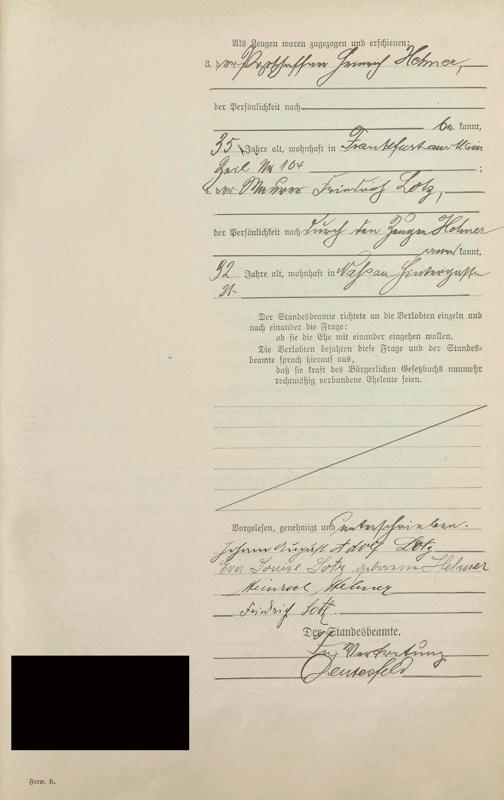 Als Zeugen waren zugezogen und erschienen:
3. der Postschaffner Heinrich Helmer,
der Persönlichkeit nach
be kannt,
35 Jahre alt, wohnhaft in Frankfurt am Main
Zeil Nr 104 ;
4. der Maurer Friedrich Lotz,
der Persönlichkeit nach durch den Zeugen Helmer
kannt,
32 Jahre alt, wohnhaft in Nassau Hintergasse
Der Standesbeamte richtete an die Verlobten einzeln und
nach einander die Frage:
ob sie die Ehe mit einander eingehen wollen.
Die Verlobten bejahten diese Frage und der Standes-
beamte sprach hierauf aus,
daß sie kraft des Bürgerlichen Gesetzbuchs nunmehr
rechtmäßig verbundene Eheleute seien.
Vorgelesen, genehmigt und unterschrieben.
Johann August Adolf Lotz
Eva Louise Lotz geborene Helmer
Heinrich Helmer
Friedrich Lotz.
Der Standesbeamte.
In Vertretung
Form. B.